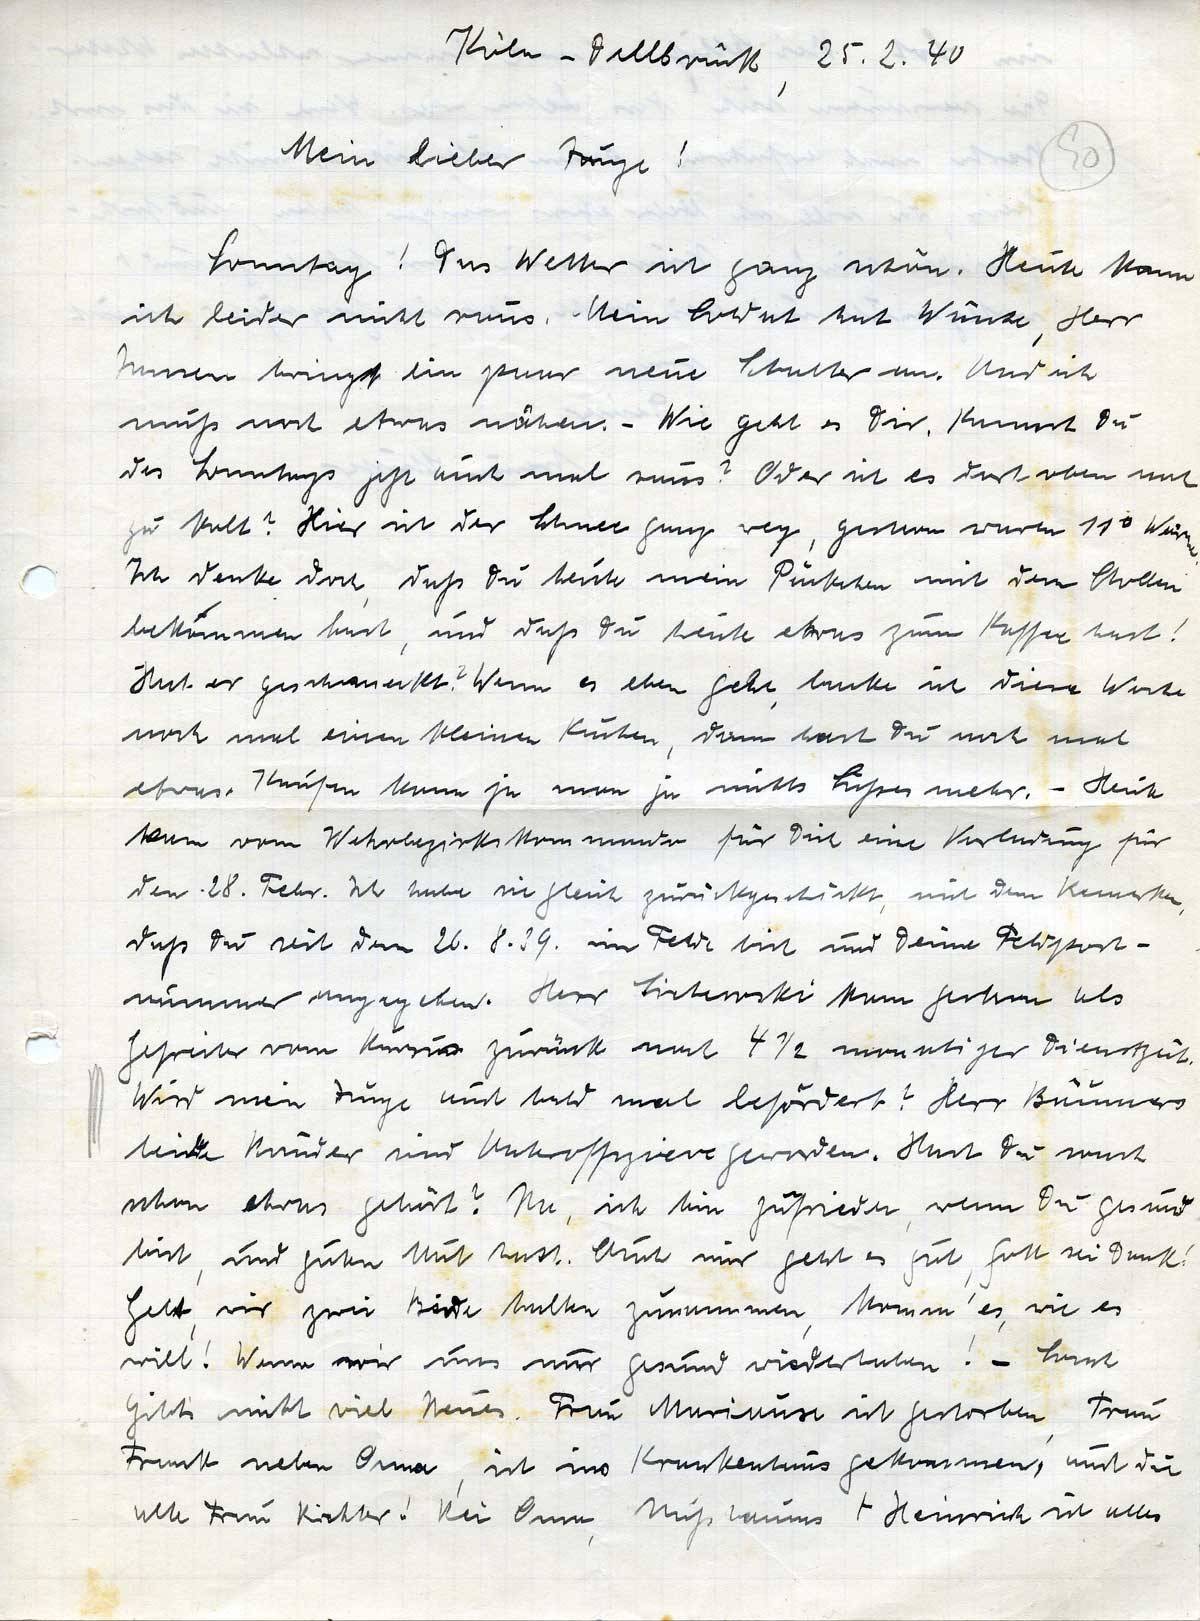 Köln-Dellbrück, 25.2.40
50
Mein lieber Junge!
Sonntag! Das Wetter ist ganz schön. Heute kann
ich leider nicht raus. Mein Soldat hat Wünsche, Herr
bringt ein paar neue Schalter an. Und ich
muß noch etwas nähen. - Wie geht es Dir. Kommst Du
des Sonntags jetzt auch mal raus? Oder ist es dort oben noch
zu kalt? Hier ist der Schnee ganz weg, gestern waren 11° Wärme.
Ich denke doch, daß Du heute mein Päckchen mit dem Stollen
bekommen hast, und daß Du heute etwas zum Kaffee hast!
Hat er geschmeckt? Wenn es eben geht, backe ich diese Woche
noch mal einen kleinen Kuchen, dann hast Du noch mal
etwas. Kaufen kann ja man ja nichts Süßes mehr. - Heute
kam vom Wehrbezirkskommando für Dich eine Vorladung für
den 28. Febr. Ich habe sie gleich zurückgeschickt, mit dem Bemerken,
daß Du seit dem 26.8.39. im Felde bist und Deine Feldpost-
nummer angegeben. Herr kam gestern als
Gefreiter vom Kursus zurück nach 4 1/2 monatiger Dienstzeit.
Wird mein Junge auch bald mal befördert? Herr
beide Brüder sind Unteroffiziere geworden. Hast Du noch
schon etwas gehört? Na, ich bin zufrieden, wenn Du gesund
bist, und guten Mut hast. Auch mir geht es gut, Gott sei Dank!
Gelt, wir zwei Beide halten zusammen, komm' es, wie es
will! Wenn wir uns nur gesund wiederhaben! - Sonst
gibts nicht viel Neues. Frau ist gestorben, Frau
Frank neben Oma, ist ins Krankenhaus gekommen, und die
alte Frau Richter! Bei Oma, Nußbaums + Heinrich ist alles